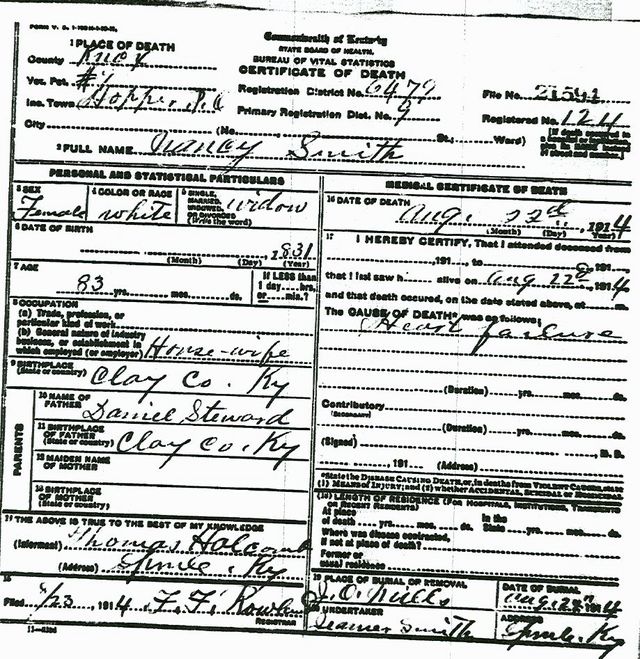 Commonwealth of Kentucky
STATE BOARD OF HEALTH.
BUREAU OF VITAL STATISTICS
CERTIFICATE OF DEATH
1 PLACE OF DEATH
County Knox
Vot. Pct. #4
Inc. Town Hopper P.O
City
Registration District No. 6479
Primary Registration Dist. No. 9
File No. 21591
Registered No. 124
(No. St.; Ward)
[If death occurred in
2 FULL NAME Nancy Smith
PERSONAL AND STATISTICAL PARTICULARS
3 SEX
Female
4 COLOR OR RACE
white
5 SINGLE, MARRIED, WIDOWED, OR DIVORCED (Write the word)
widow
6 DATE OF BIRTH
1831
(Month) (Day) (Year)
7 AGE
83 yrs. mos. ds.
If LESS than
1 day hrs.
or min.?
8 OCCUPATION
(a) Trade, profession, or
particular kind of work
(b) General nature of industry
business, or establishment in
which employed (or employer) House-wife
9 BIRTHPLACE
(State or country) Clay Co. Ky
PARENTS
10 NAME OF
FATHER Daniel Steward
11 BIRTHPLACE
OF FATHER
(State or country) Clay Co. Ky
12 MAIDEN NAME
OF MOTHER
13 BIRTHPLACE
OF MOTHER
(State or country)
14 THE ABOVE IS TRUE TO THE BEST OF MY KNOWLEDGE
(Informant) Thomas Holcomb
(Address) Sprule, Ky
15
Filed 8/23, 1914 F. F. Rowland
REGISTRAR
MEDICAL CERTIFICATE OF DEATH
16 DATE OF DEATH
Aug. 22d, 1914
(Month) (Day) (Year)
17 I HEREBY CERTIFY, That I attended deceased from
, 191 , to , 191
that I last saw h alive on Aug 22d, 1914
and that death occured, on the date stated above, at m.
The CAUSE OF DEATH* was as follows:
Heart failure
(Duration) yrs. mos. ds.
Contributory
(Secondary)
(Duration) yrs. mos. ds.
(Signed) , M. D.
, 191 (Address)
*State the DISEASE CAUSING DEATH, or, in deaths from VIOLENT CAUSES, state
(1) MEANS OF INJURY; and (2) whether ACCIDENTAL, SUICIDAL or HOMICIDAL
(18) LENGTH OF RESIDENCE (FOR HOSPITALS, INSTITUTIONS, TRANSIENTS
OR RECENT RESIDENTS)
At place
of death yrs. mos. ds.
In the
State yrs. mos. ds.
Where was disease contracted,
if not at place of death?
Former or
usual residence
19 PLACE OF BURIAL OR REMOVAL
J. O. Mills
DATE OF BURIAL
Aug. 1914
20 UNDERTAKER
Smith
ADDRESS
Sprule, Ky